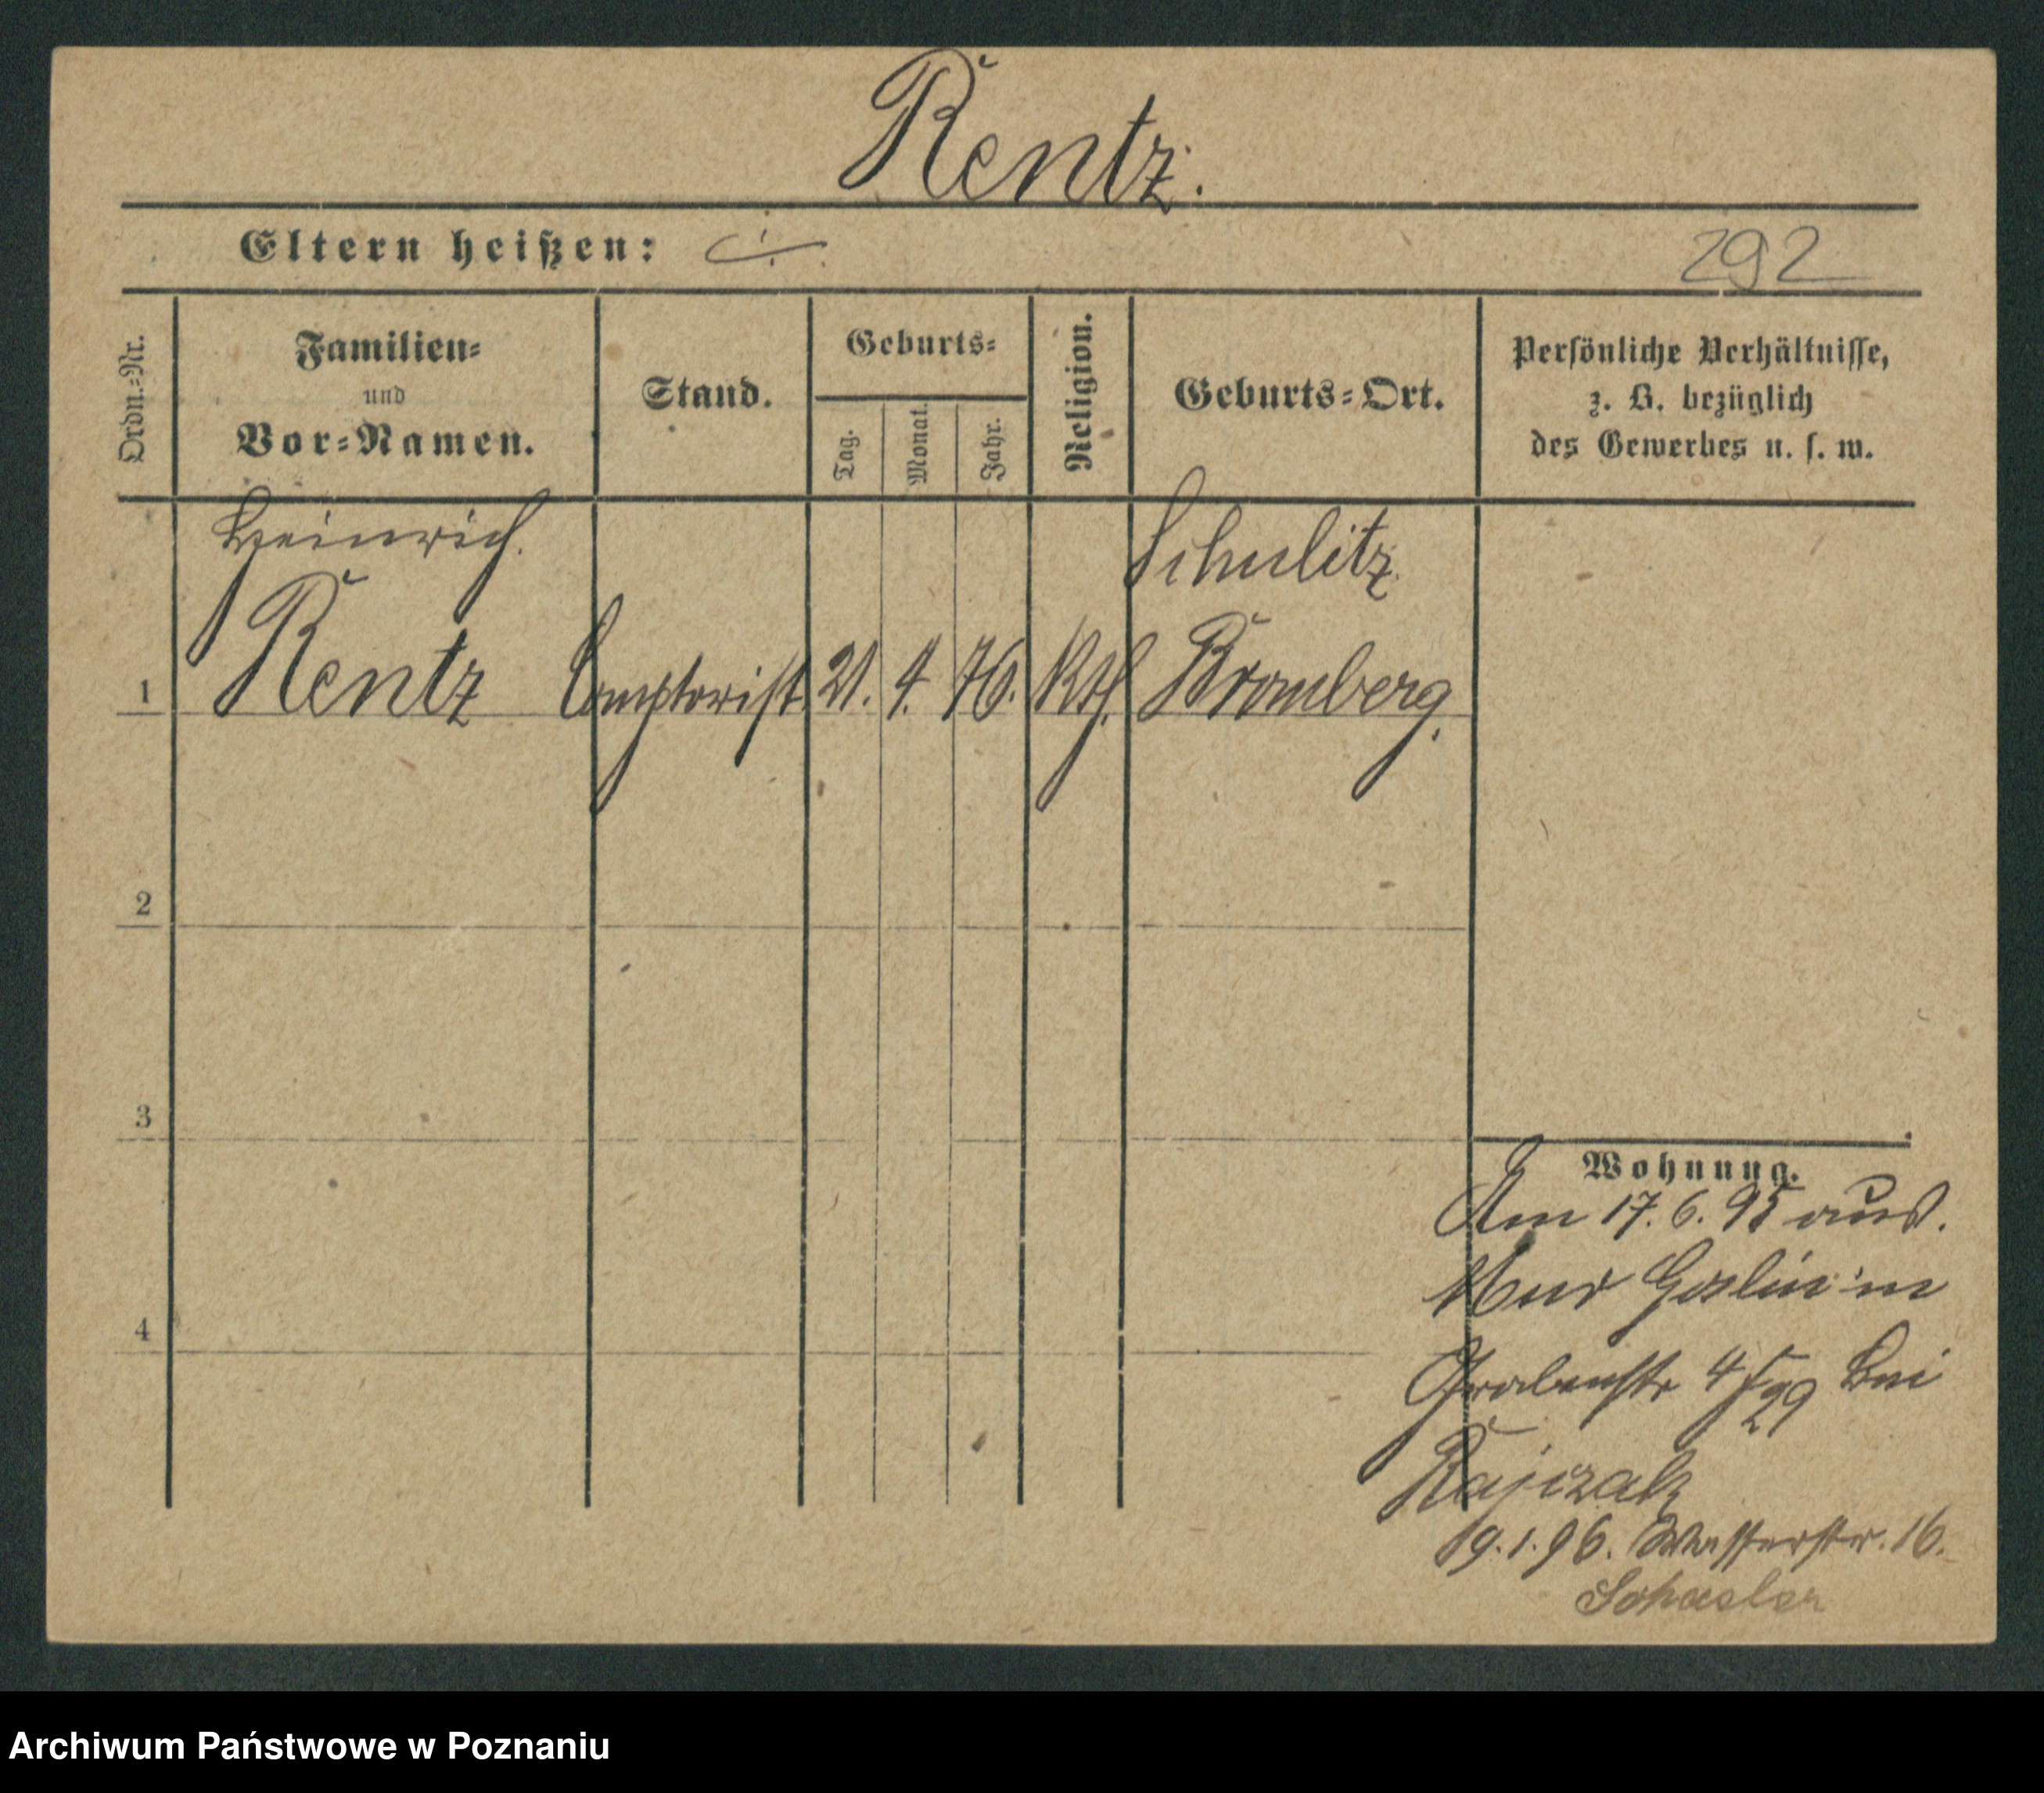 Rentz.
Eltern heißen: ./.
292
Ordn.=Nr.
Familien=
und
Vor=Namen.
Stand.
Geburts=
Tag.
Monat.
Jahr.
Religion.
Geburts=Ort.
Persönliche Verhältnisse,
z. B. bezüglich
des Gewerbes u. s. w.
Heinrich.
Schulitz
1 Rentz Comptorist 21. 4. 76. Kth. Bromberg.
2
3
4
Wohnung.
Am 17. 6. 95 aus.
Mur Goslin in
Grabenstr 4/29 bei
Rajczak
19.1.96. Wasserstr. 16.
Schaeler
Archiwum Państwowe w Poznaniu